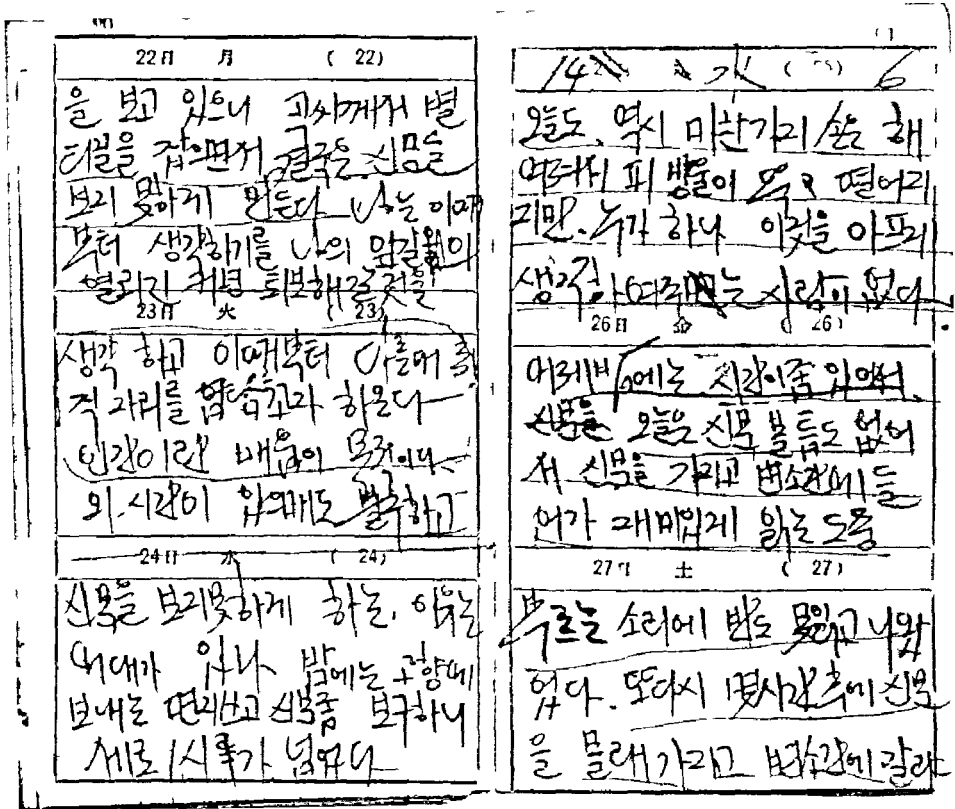 22日 月 ( 22)
을 보고 있으니 고싸게서 별
터블을 잡으면서 결국은 신문을
보지 못하게 만든다 나는 이때
부터 생각하기를 나의 앞길의
열려진 퇴보해 것을
23日 火 ( 23)
생각 하고 이때부터 다를때
직 자리를 하온다
인간이란 배움이 목적이다.
외. 시간이 있음에도 불구하고
24日 水 ( 24)
신문을 보지못하게 하는, 있는
대가 있나. 밤에는 고향에
보내는 편지쓰고 신문좀 보구하니
새로 1시가 넘었다
14 6
오늘도. 역시 마찬가지 손은 해
여려서 피 방울이 뚝뚝 떨어지
지만. 누가 하나 이것을 아프게
생각 여주는 사람이 없다.
26日 金 ( 26)
어레바에는 시간이좀 있어서.
신문을 오늘은 신문 볼틈도 없어
서 신문을 가지고 변소간에 들
어가 재미있게 읽는 도중
27日 土 ( 27)
부르는 소리에 반도 못읽고 나왔
었다. 또다시 몇시간 후에 신문
을 몰래 가지고 변소간에 갈라